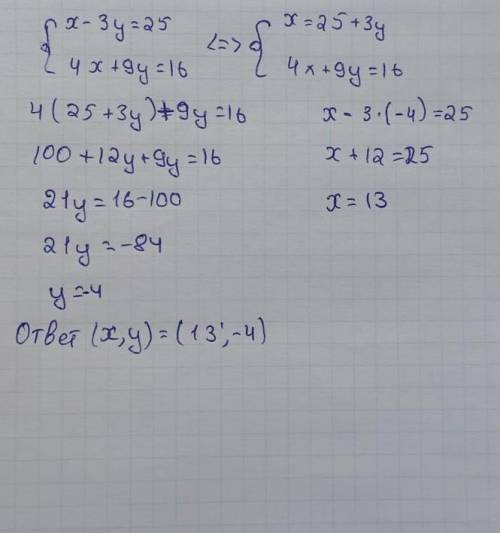 { x - 3y = 25 <=> { x = 25 + 3y
4x + 9y = 16 4x + 9y = 16
4(25 + 3y) + 9y = 16
100 + 12y + 9y = 16
21y = 16 - 100
21y = -84
y = -4
x - 3·(-4) = 25
x + 12 = 25
x = 13
Ответ (x, y) = (13; -4)